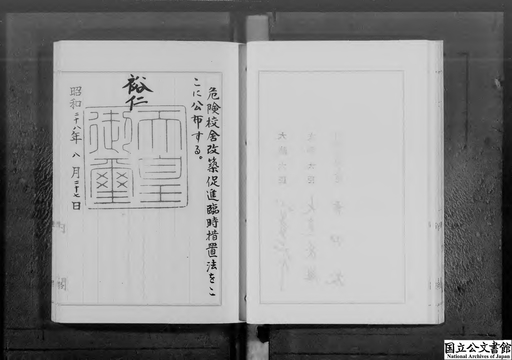 危険校舎改築促進臨時措置法をこ
こに公布する。
裕仁
天皇
御璽
昭和二十八年八月二十七日
国立公文書館
National Archives of Japan